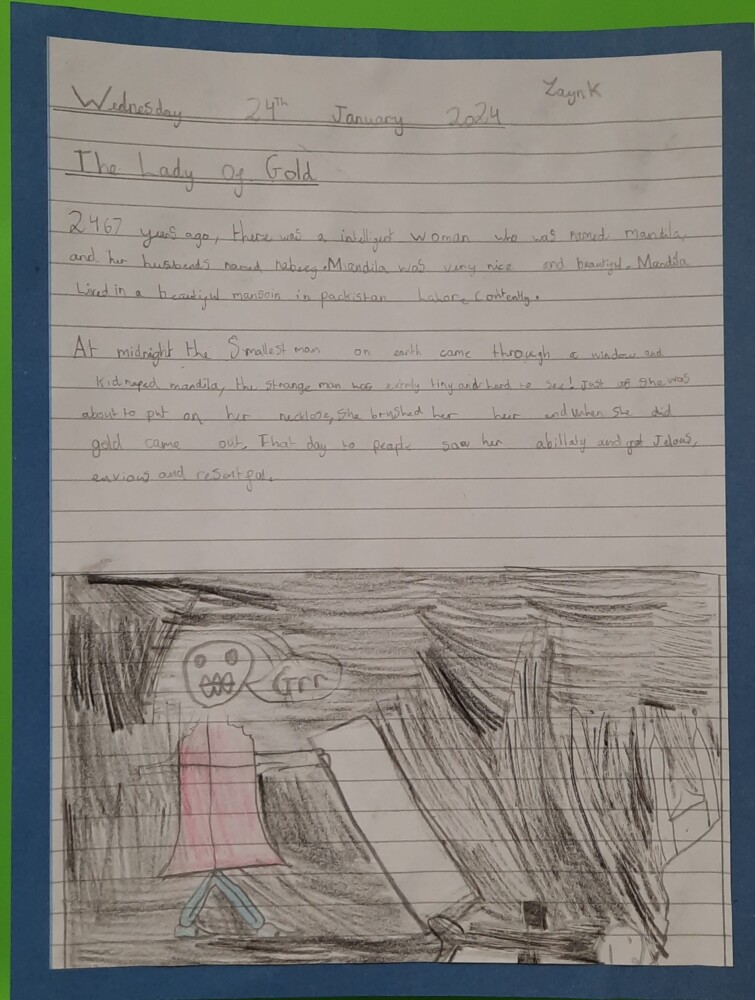 Zayn K
Wednesday 24th January 2024
The Lady of Gold
2467 years ago, there was a intelligent woman who was named mandila,
and her husbends named habeeg. Mandila was very nice and beautiful. Mandila
Lived in a beautiful mansoin in parkistan Lahore Contently.
At midnight the Smallest man on earth came through a window and
Kidnaped mandila, the strange man was extmly tiny and hard to see! Just as she was
about to put on her necklose, She brushed her heir and when she did
gold came out. That day to peaple saw her abillaty and got Jelous,
envious and resentful.
Grr